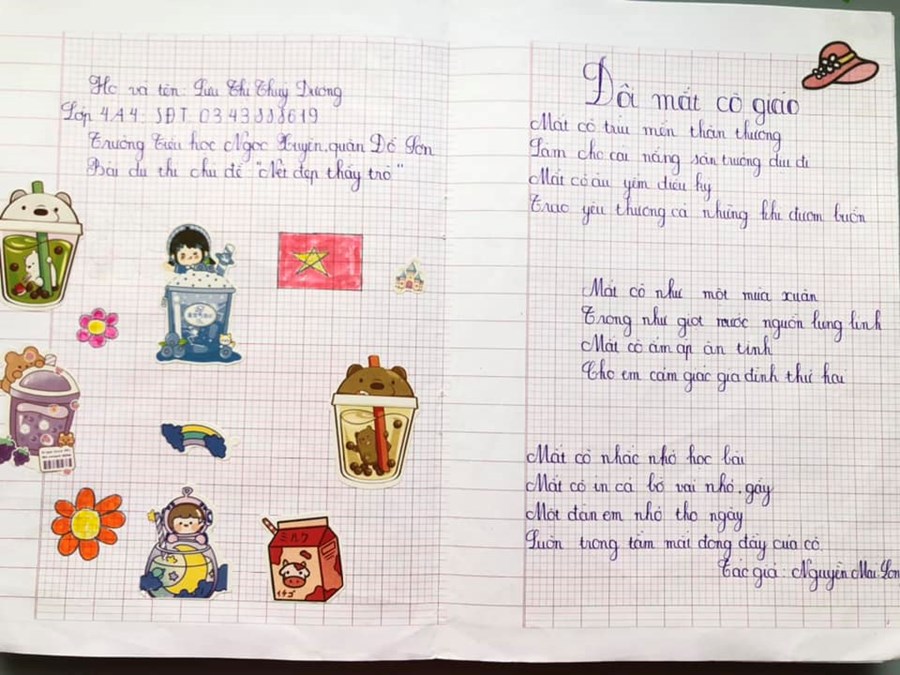 Họ và tên: Lưu Thị Thuỳ Dương
Lớp 4A4. SĐT 0343888619
Trường Tiểu học Ngọc Xuyên, quận Đồ Sơn
Bài dự thi chủ đề "Nét đẹp thầy trò"
ミルク
イチゴ
Đôi mắt cô giáo
Mắt cô trìu mến thân thương
Làm cho cái nắng sân trường dịu đi
Mắt cô âu yếm diệu kỳ
Trao yêu thương cả những khi đượm buồn
Mắt cô như một mùa xuân
Trong như giọt nước nguồn lung linh
Mắt cô ấm áp ân tình
Cho em cảm giác gia đình thứ hai
Mắt cô nhắc nhở học bài
Mắt cô in cả bờ vai nhỏ, gầy
Một đàn em nhỏ thơ ngây
Luôn trong tầm mắt đong đầy của cô.
Tác giả: Nguyễn Mai